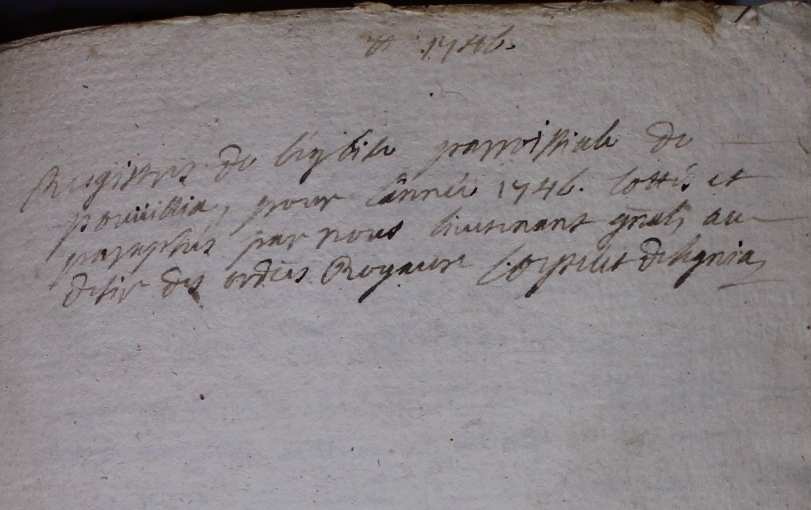 1746.
Registres de léglise parroissiale de
pouuillia, pour lannéé 1746. cottés et
paraphés par nous lieutenant gnal, au
desir des ordres Royaux